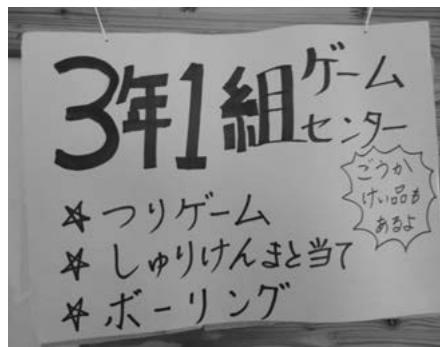 3年1組ゲーム
センター
ごうか
けい品も
あるよ
☆つりゲーム
☆しゅりけんまと当て
☆ボーリング